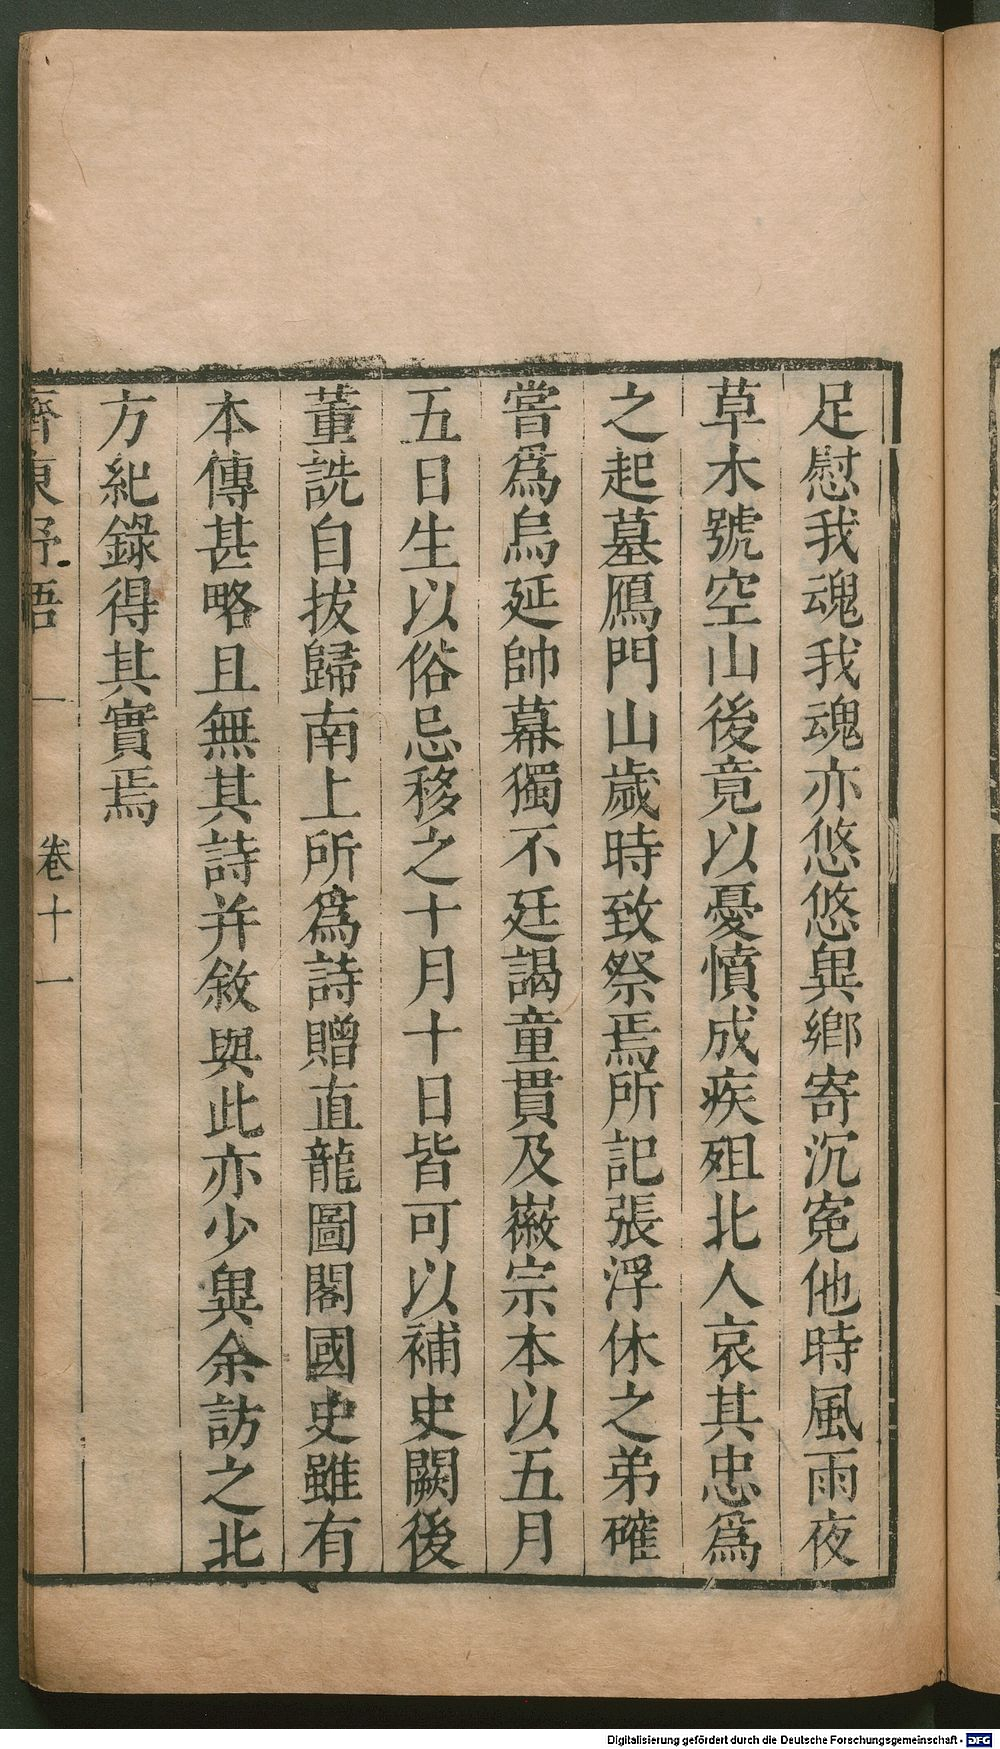 足慰我魂我魂亦悠悠異鄉寄沉寃他時風雨夜
草木號空山後竟以憂憤成疾殂北人哀其忠爲
之起墓鴈門山歲時致祭焉所記張浮休之弟確
嘗爲烏延帥幕獨不廷謁童貫及徽宗本以五月
五日生以俗忌移之十月十日皆可以補史闕後
董詵自拔歸南上所爲詩贈直龍圖閣國史雖有
本傳甚略且無其詩并敘與此亦少異余訪之北
方紀錄得其實焉
齊東野語 卷十一
Digitalisierung gefördert durch die Deutsche Forschungsgemeinschaft - DFG